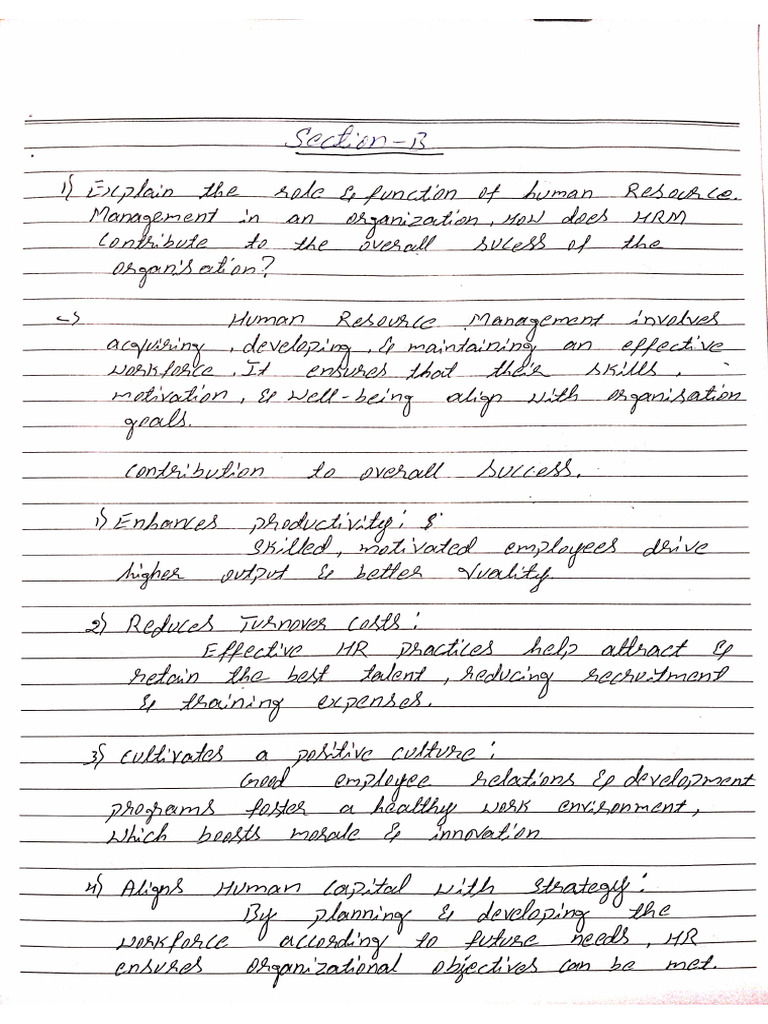 Section-B
1) Explain the role & function of human Resource.
Management in an organization, How does HRM
contribute to the overall sucess of the
organisation?
Human Resource Management involves
acquiring, developing, & maintaining an effective
workforce. It ensures that their skills,
motivation, & well-being align with organisation
goals.
Contribution to overall success.
1) Enhances productivity:
skilled, motivated employees drive
higher output & better quality.
2) Reduces Turnover costs:
Effective HR practices help attract &
retain the best talent, reducing recruitment
& training expenses.
3) Cultivates a positive culture:
Good employee relations & development
programs foster a healthy work environment,
which boosts morale & innovation
4) Aligns Human Capital with strategy:
By planning & developing the
workforce according to future needs, HR
ensures organizational objectives can be met.